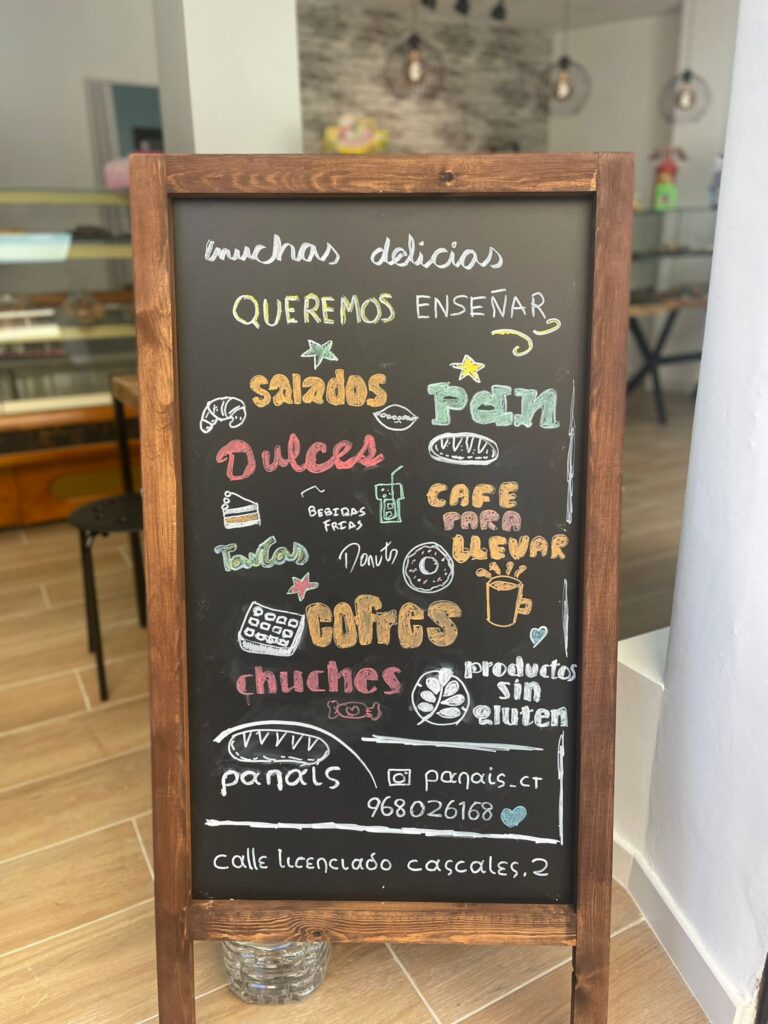 muchas delicias
QUEREMOS ENSEÑAR
salados
pan
Dulces
BEBIDAS
FRIAS
CAFE
PARA
LLEVAR
Tartas
Donuts
cofres
chuches
productos
sin
gluten
panais
panais_CT
968026168
calle licenciado cascales, 2